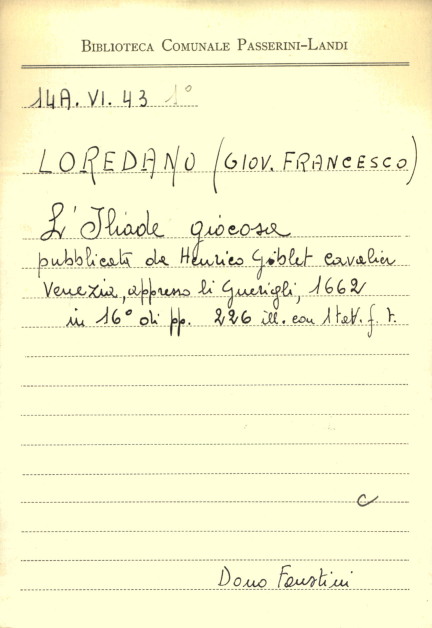 BIBLIOTECA COMUNALE PASSERINI-LANDI
14A. VI. 43 1°
LOREDANO (GIOV. FRANCESCO)
L'Iliade giocosa
pubblicata da Henrico Giblet cavalier
Venezia, appresso li Guerigli, 1662
in 16° di pp. 226 ill. con 1 tav. f. t.
c
Dono Faustini